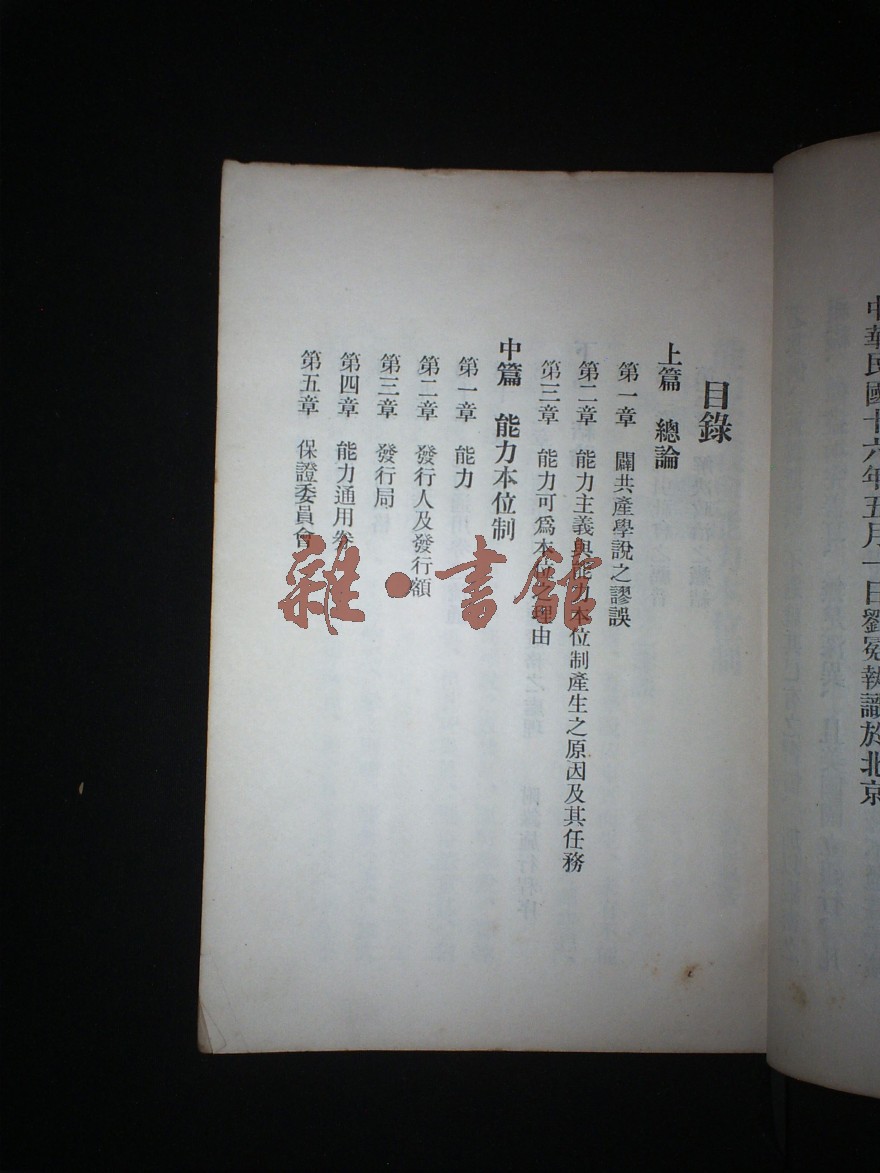 中華民國十六年五月一日劉冕執識於北京
目錄
上篇　總論
第一章　闢共產學說之謬誤
第二章　能力主義與能力本位制產生之原因及其任務
第三章　能力可爲本位之理由
中篇　能力本位制
第一章　能力
第二章　發行人及發行額
第三章　發行局
第四章　能力通用券
第五章　保證委員會
雜·書館